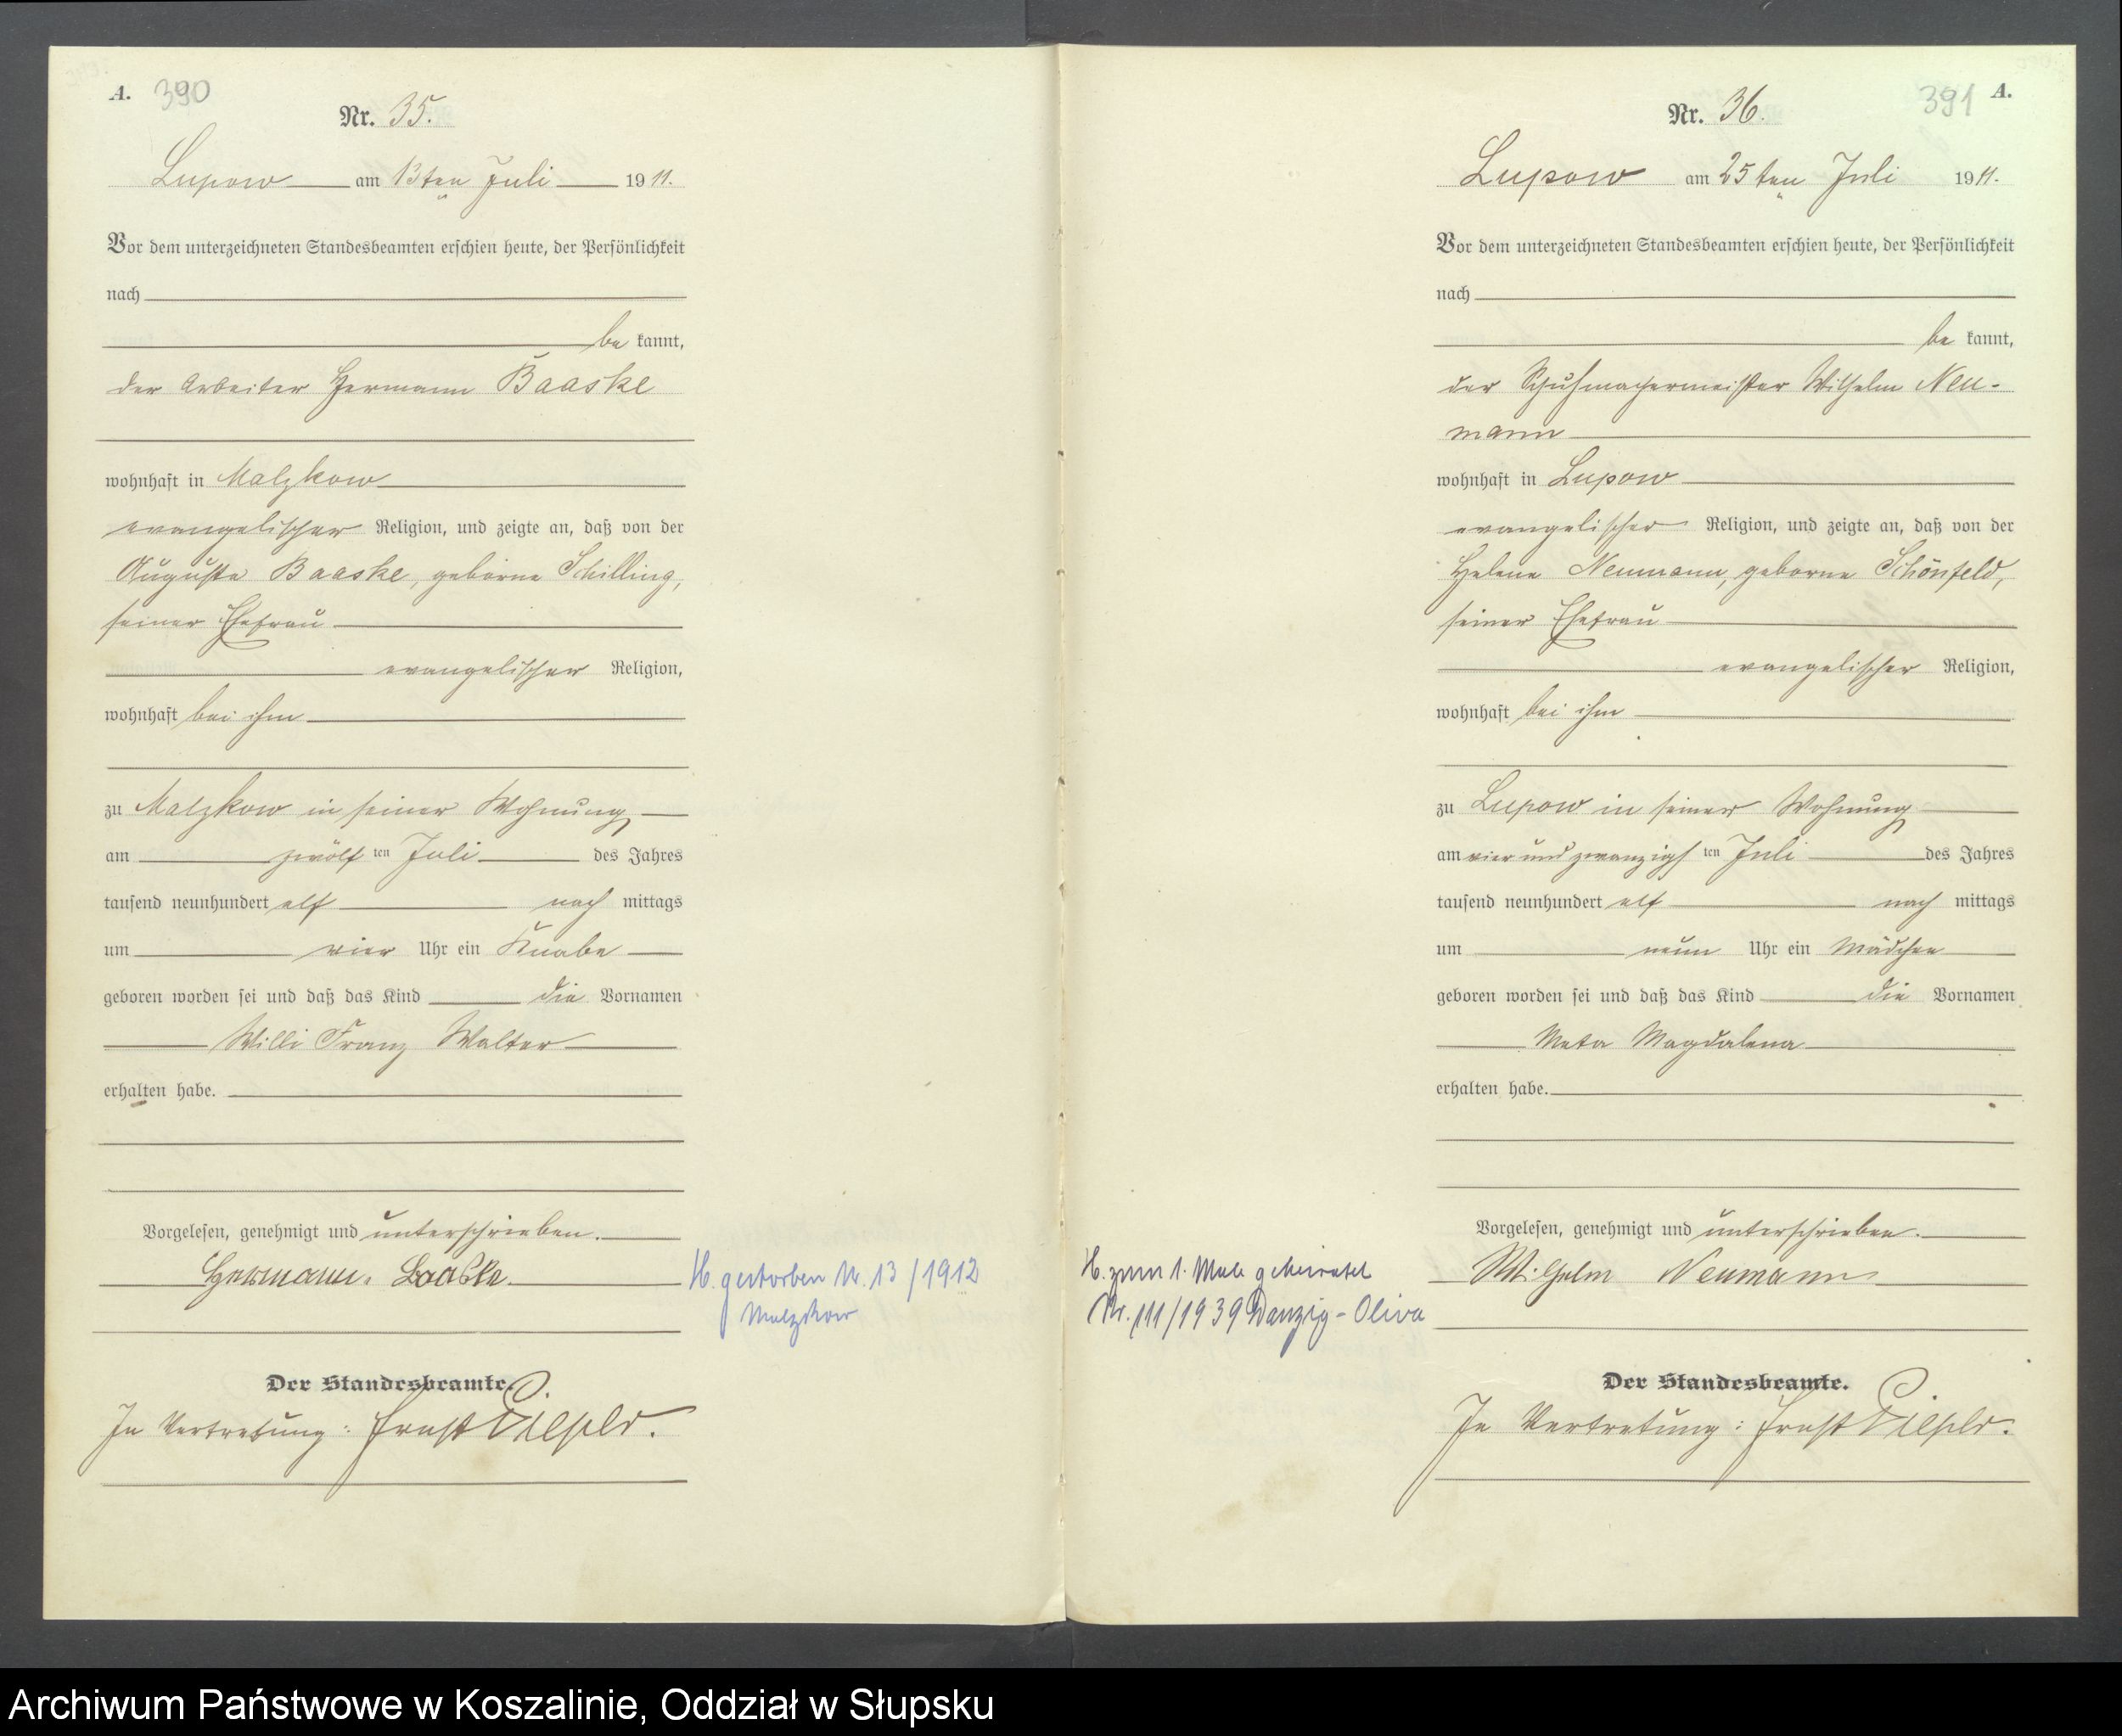 A. 390
Nr. 35.
Lupow am 13ten Juli 1911.
Vor dem unterzeichneten Standesbeamten erschien heute, der Persönlichkeit
nach
be kannt,
der Arbeiter Hermann Baaske
wohnhaft in Malzkow
evangelischer Religion, und zeigte an, daß von der
Auguste Baaske, geborne Schilling,
seiner Ehefrau
evangelischer Religion,
wohnhaft bei ihm
zu Malzkow in seiner Wohnung
am zwölf ten Juli des Jahres
tausend neunhundert elf nach mittags
um vier Uhr ein Knabe
geboren worden sei und daß das Kind die Vornamen
Willi Franz Walter
erhalten habe.
Vorgelesen, genehmigt und unterschrieben.
Hermann Baaske
H. gestorben Nr. 13/1912
Malzkow
Der Standesbeamte.
In Vertretung: Ernst
391 A.
Nr. 36.
Lupow am 25ten Juli 1911.
Vor dem unterzeichneten Standesbeamten erschien heute, der Persönlichkeit
nach
be kannt,
der Schuhmachermeister Wilhelm Neu-
mann
wohnhaft in Lupow
evangelischer Religion, und zeigte an, daß von der
Helene Neumann, geborne Schönfeld,
seiner Ehefrau
evangelischer Religion,
wohnhaft bei ihm
zu Lupow in seiner Wohnung
am vier und zwanzigst ten Juli des Jahres
tausend neunhundert elf nach mittags
um neun Uhr ein Mädchen
geboren worden sei und daß das Kind die Vornamen
Meta Magdalena
erhalten habe.
Vorgelesen, genehmigt und unterschrieben.
Wilhelm Neumann
H. zum 1. Male geheiratet
Nr. 111/1939 Danzig-Oliva
Der Standesbeamte.
In Vertretung: Ernst
Archiwum Państwowe w Koszalinie, Oddział w Słupsku